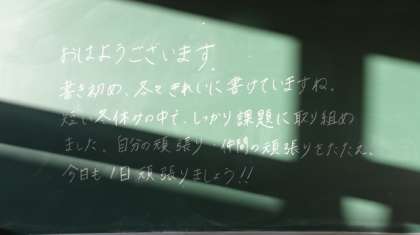 おはようございます。
書き初め、とてもきれいに書けていますね。
短い冬休みの中で、しっかり課題に取り組め
ました。自分の頑張り、仲間の頑張りをたたえ、
今日も1日頑張りましょう!!